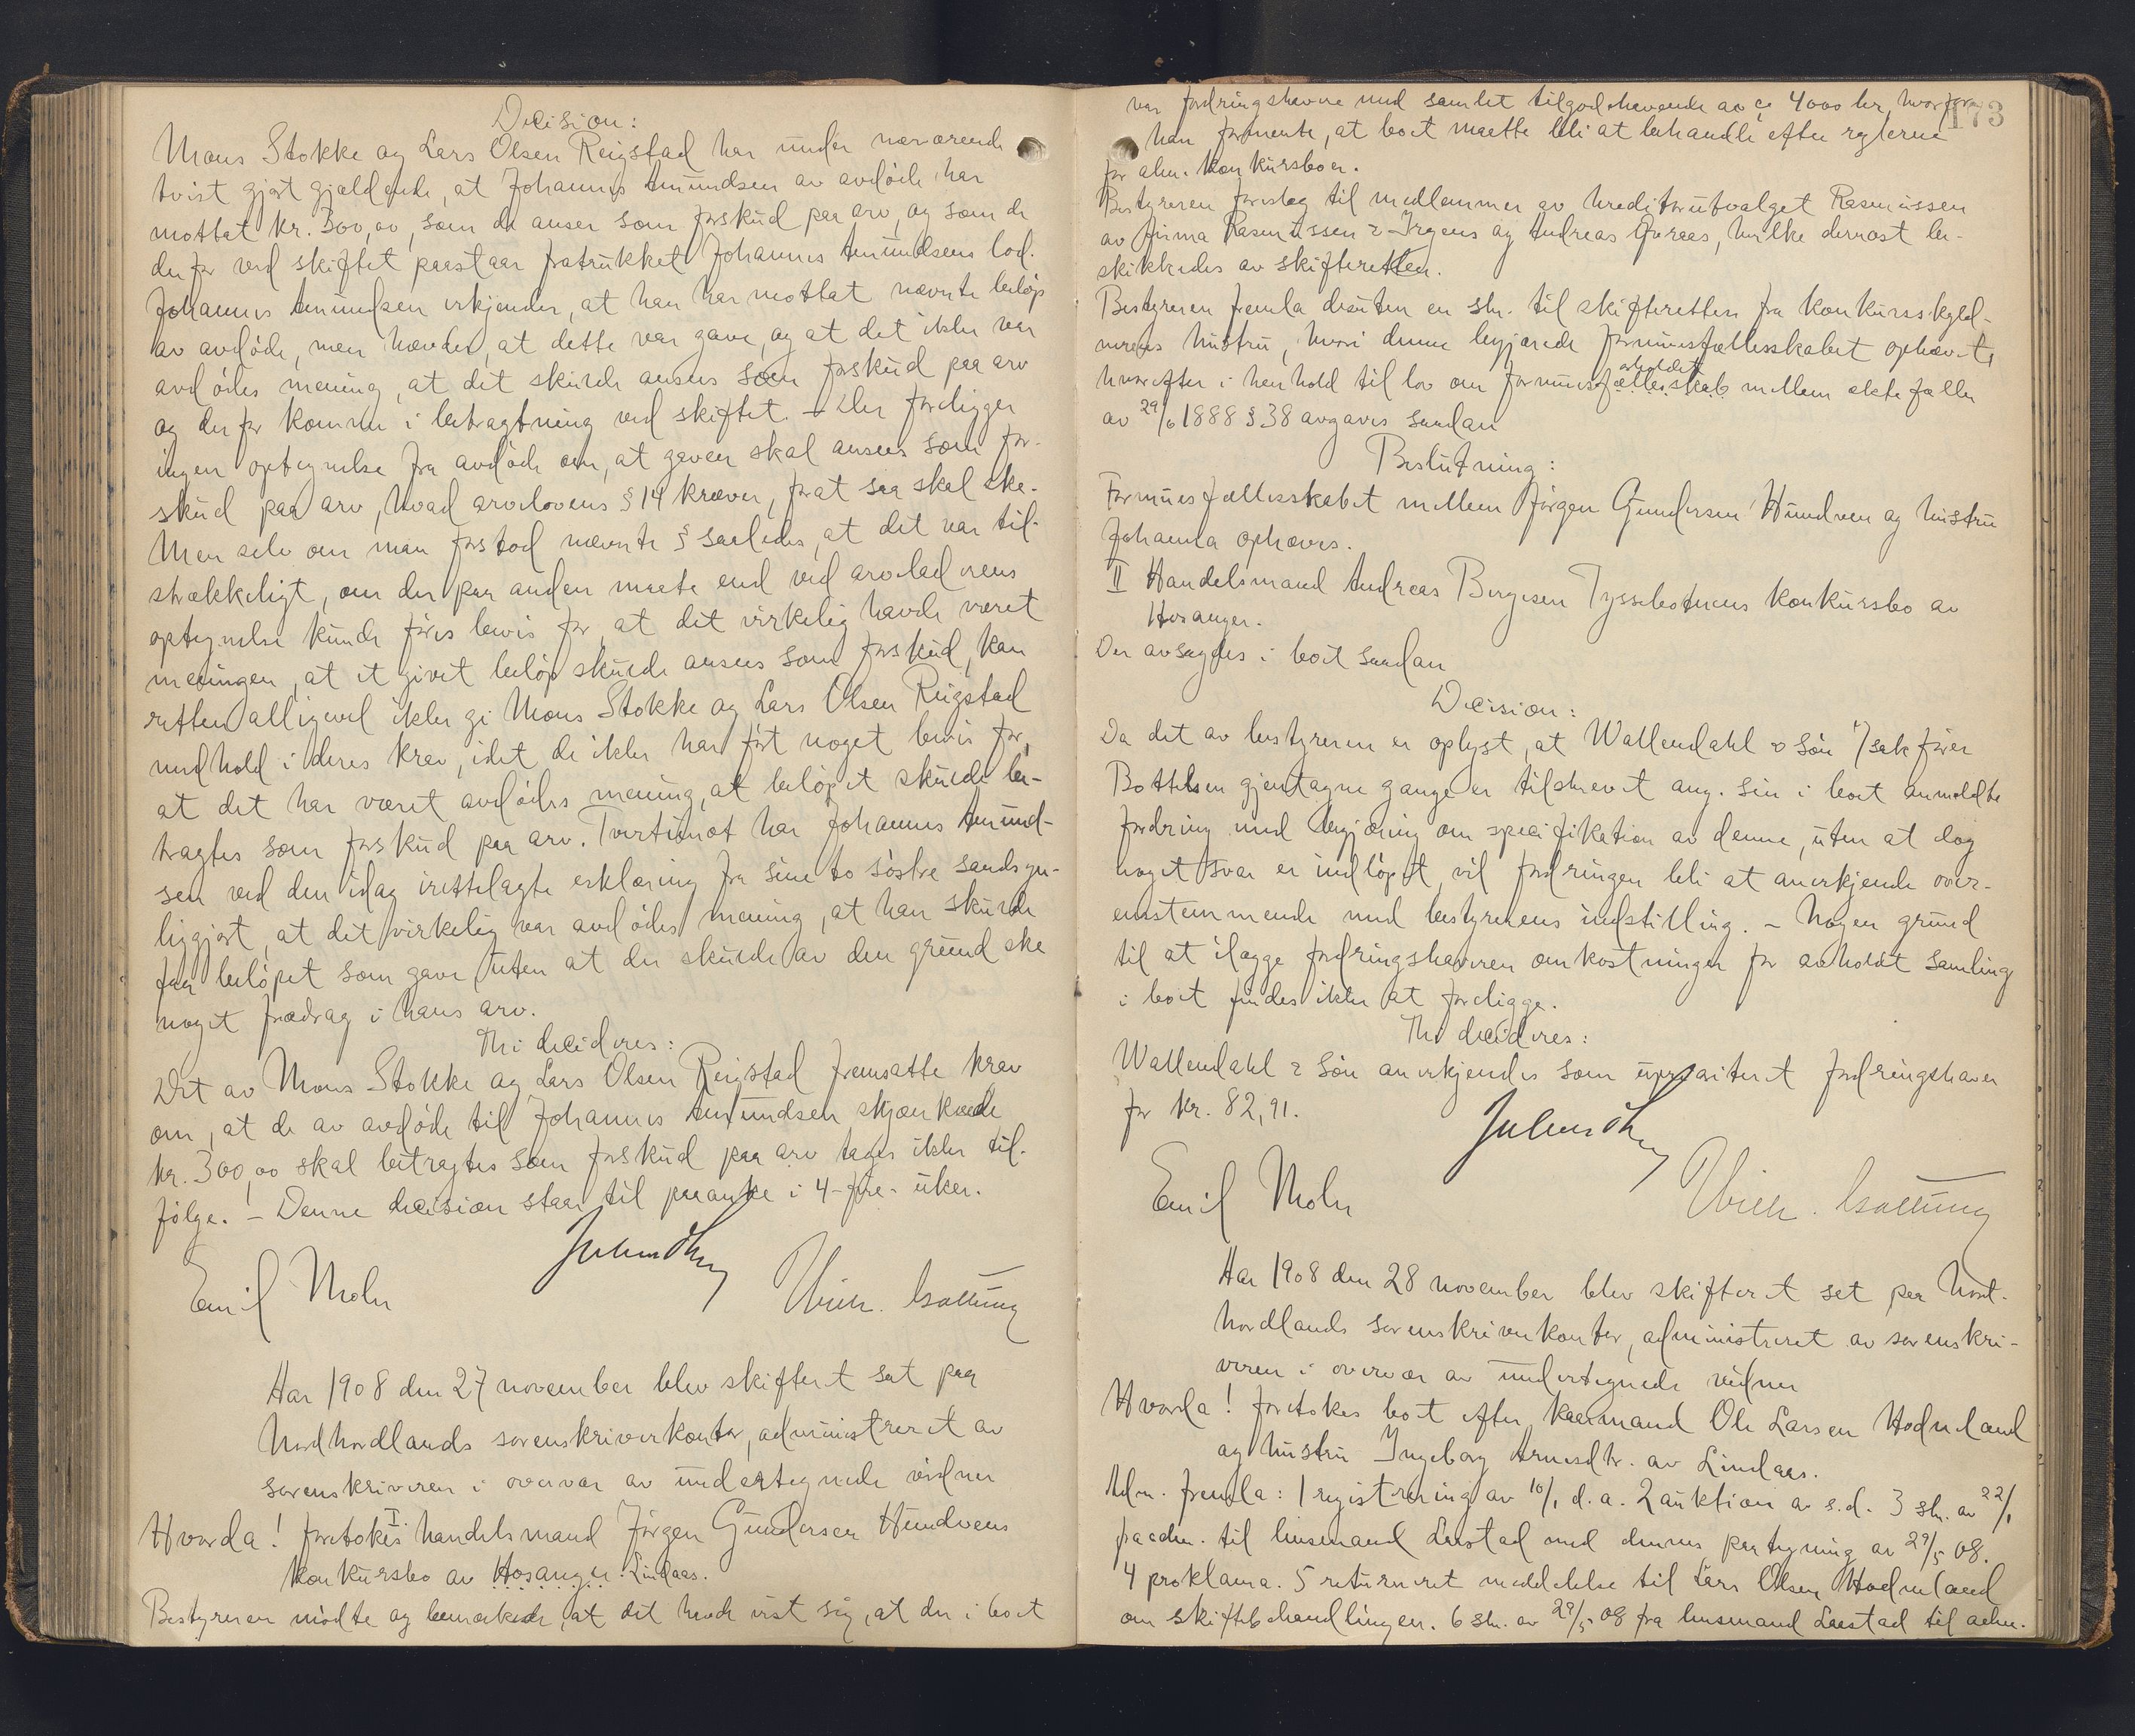 Decision:
Mons Stokke og Lars Olsen Reigstad har under nærværende
tvist gjort gjældende, at Johannes Amundsen av avdøde har
mottat kr. 300,00, som de anser som forskud paa arv, og som de
derfor ved skiftet paastaar fratrukket Johannes Amundsens lod.
Johannes Amundsen erkjender, at han har mottat nævnte beløp
av avdøde, men hævder, at dette var gave, og at det ikke var
avdødes mening, at det skulde ansees som forskud paa arv
og derfor komme i betragtning ved skiftet. – Der foreligger
ingen optegnelse fra avdøde om, at gaven skal ansees som for-
skud paa arv, hvad arvelovens § 14 kræver, for at saa skal ske.
Men selv om man forstod nævnte § saaledes, at det var til-
strækkeligt, om der paa anden maate end ved arveladerens
optegnelse kunde føres bevis for, at det virkelig havde været
meningen, at et givet beløp skulde ansees som forskud, kan
retten alligevel ikke gi Mons Stokke og Lars Olsen Reigstad
medhold i deres krav, idet de ikke har ført noget bevis for,
at det har været avdødes mening, at beløpet skulde be-
tragtes som forskud paa arv. Tvertimot har Johannes Amund-
sen ved den idag irettelagte erklæring fra sine to søstre sandsyn-
liggjort, at det virkelig var avdødes mening, at han skulde
faa beløpet som gave, uten at der skulde av den grund ske
noget fradrag i hans arv.
Thi decideres:
Det av Mons Stokke og Lars Olsen Reigstad fremsatte krav
om, at de av avdøde til Johannes Amundsen skjænkede
kr. 300,00 skal betragtes som forskud paa arv tages ikke til-
følge. – Denne decision staar til paaanke i 4-fire-uker.
Emil Mohr
Aar 1908 den 27 november blev skifteret sat paa
Nordhordlands sorenskriverkontor, administreret av
sorenskriveren i overvær av undertegnede vidner
Hvorda! foretokes I. handelsmand Jørgen Gundersen Hundvens
konkursbo av Hosanger Lindaas.
Bestyreren mødte og bemerkede, at det havde vist sig, at der i boet
173
var fordringshavere med samlet tilgodehavende av ca 4000 kr, hvorfor
han formente, at boet maatte bli at behandle efter reglerne
for alm. konkursboer.
Bestyreren foreslog til medlemmer av kreditorutvalget Rasmussen
av firma Rasmussen & Irgens og Andreas Gjeraas, hvilke dernæst be-
skikkedes av skifteretten.
Bestyreren fremla desuten en skr. til skifteretten fra konkursskyld-
nerens hustru, hvori denne begjærede formuesfællesskabet ophævet,
hvorefter i henhold til lov om formuesforholdet mellem ektefæller
av 29/6 1888 § 38 avgaves saadan
Beslutning:
Formuesfællesskabet mellem Jørgen Gundersen Hundven og hustru
Johanna ophæves.
II Handelsmand Andreas Børgesen Tyssebotnens konkursbo av
Hosanger.
Der avsagdes i boet saadan
Decision:
Da det av bestyreren er oplyst, at Wallendahl & Søn v/ sakfører
Bottelsen gjentagne gange er tilskrevet ang. sin i boet anmeldte
fordring med begjæring om specifikation av denne, uten at dog
noget svar er indløpet, vil fordringen bli at anerkjende over-
ensstemmende med bestyrerens indstilling. – Nogen grund
til at ilægge fordringshaveren omkostninger for avholdt samling
i boet findes ikke at foreligge.
Thi decideres:
Wallendahl & Søn anerkjendes som uprioritert fordringshaver
for kr. 82,91.
Emil Mohr
Aar 1908 den 28 november blev skifteret set paa Nord-
hordlands sorenskriverkontor, administreret av sorenskri-
veren i overvær av undertegnede vidner
Hvorda! foretokes boet efter kaarmand Ole Larsen Hodneland
og hustru Ingeborg Arnesdtr. av Lindaas.
Adm. fremla: 1 registrering av 10/1 d.a. 2 auktion av s.d. 3 skr. av 22/1
paadm. til lensmand Lerstad med dennes paategning av 29/5 08.
4 proklama. 5 returneret meddelelse til Lars Olsen Hodneland
om skiftebehandlingen. 6 skr. av 29/5 08 fra lensmand Lerstad til adm.